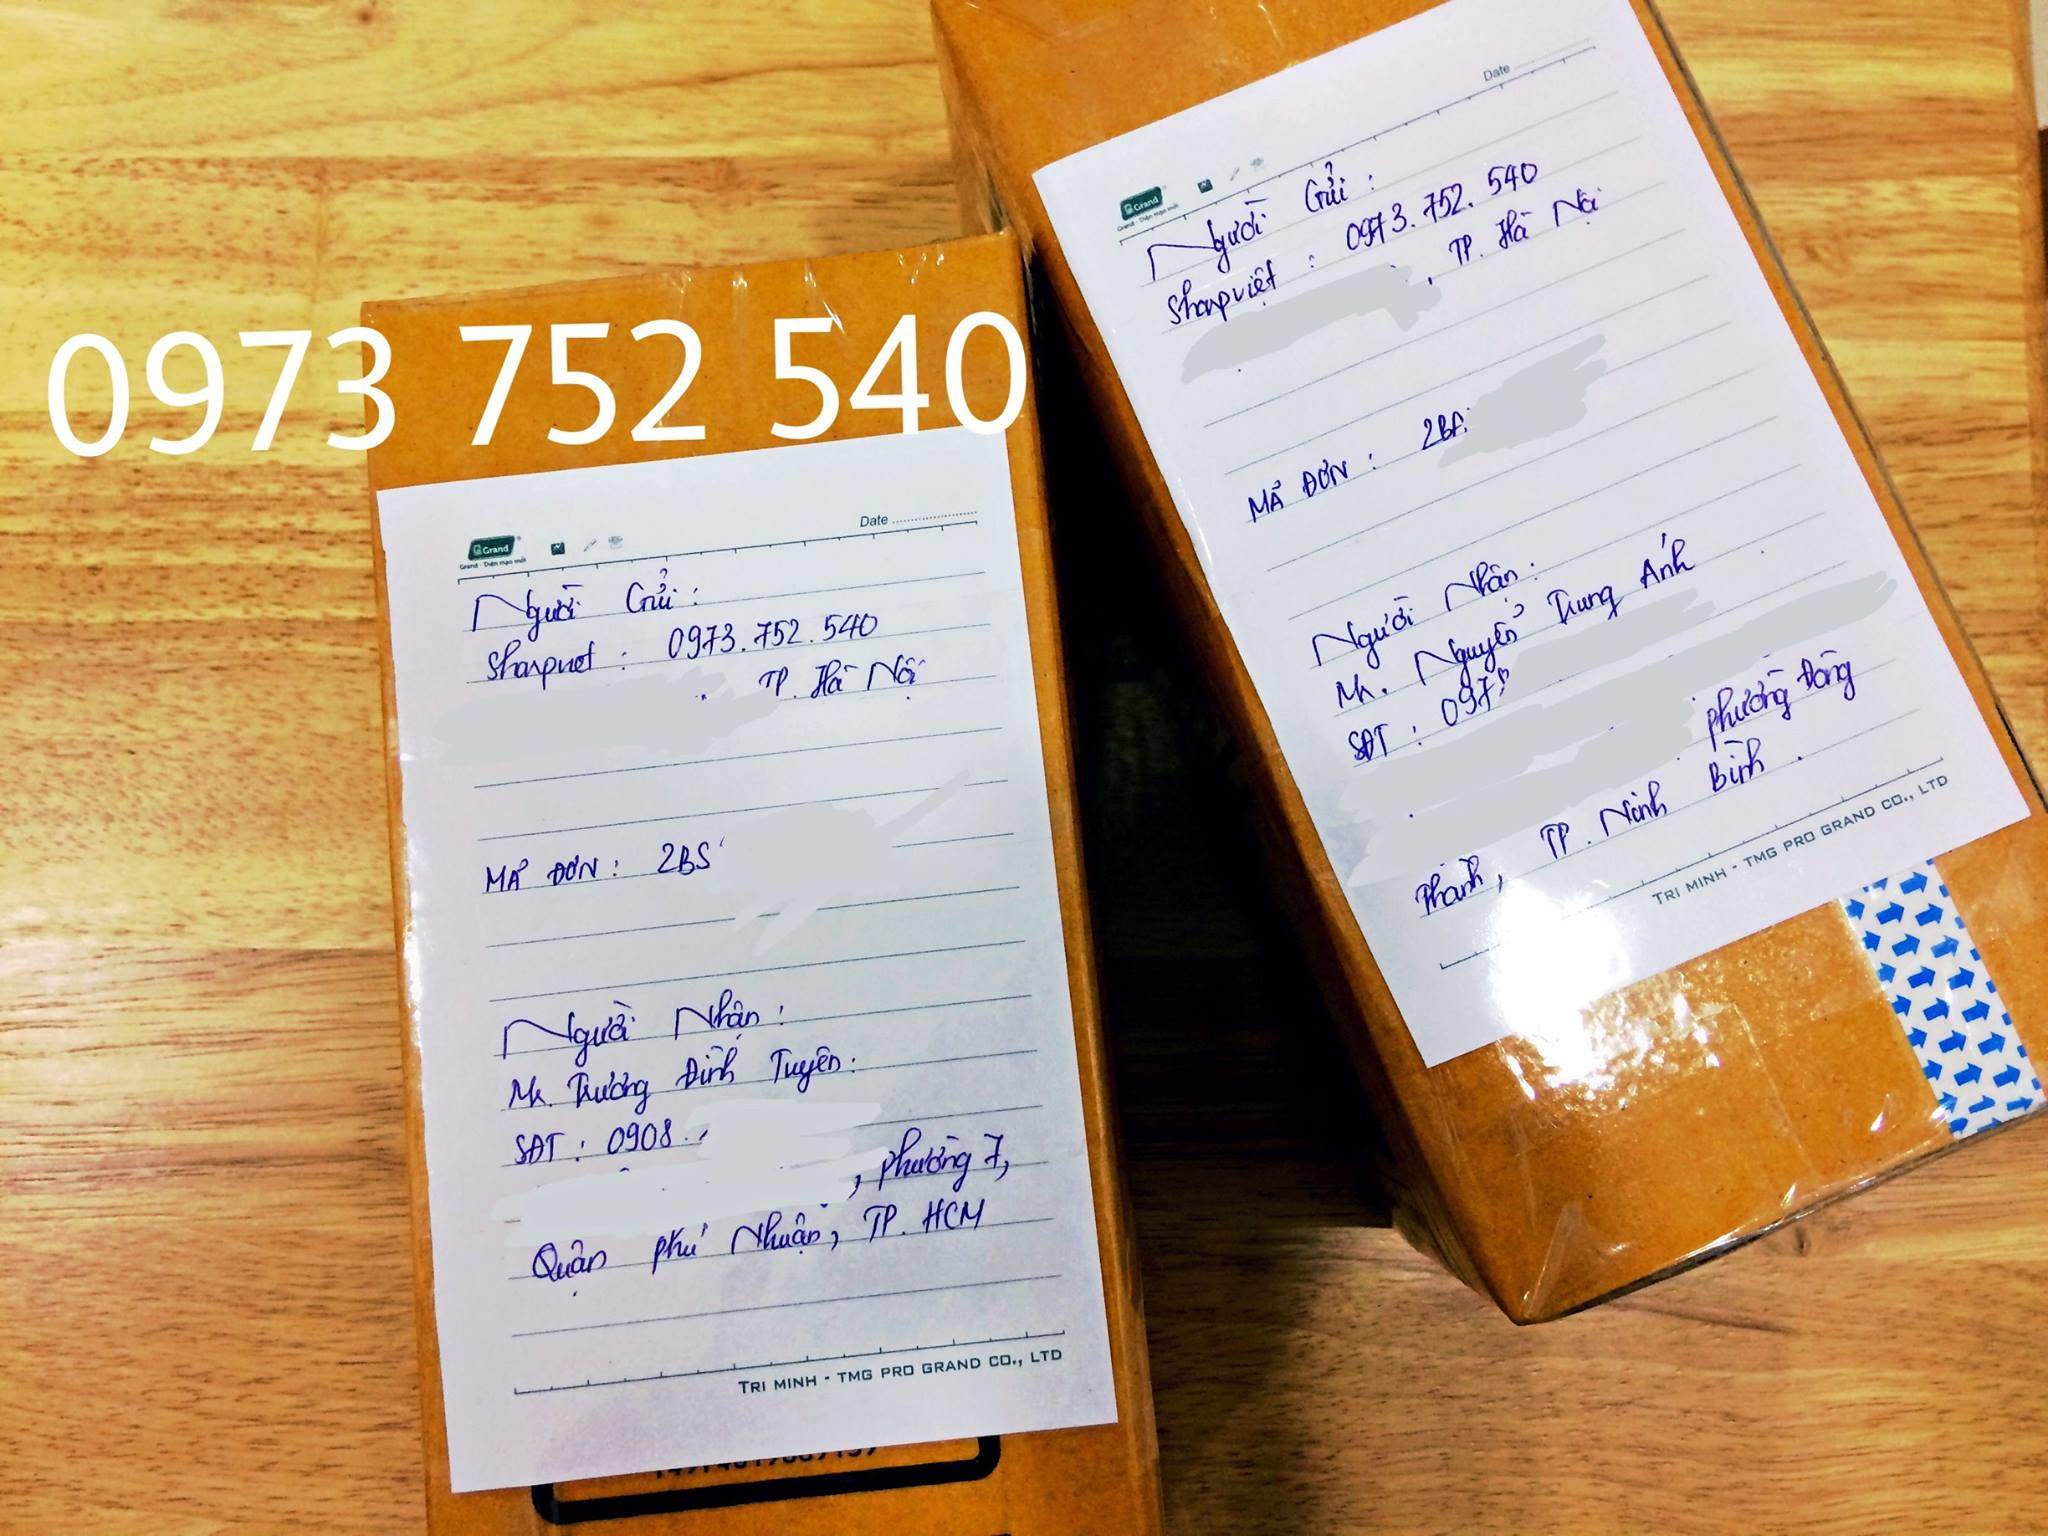 0973 752 540
Grand
Grand - Diện mạo mới
Date
Người Gửi:
Sharpviet: 0973.752.540
TP. Hà Nội
MÃ ĐƠN: 2BS
Người Nhận:
Mr. Trương Đình Tuyên:
SĐT: 0908.
, phường 7,
Quận Phú Nhuận, TP. HCM
TRI MINH - TMG PRO GRAND CO., LTD
Grand
Grand - Diện mạo mới
Date
Người Gửi:
Sharpviệt: 0973.752.540
, TP. Hà Nội
MÃ ĐƠN: 2BA
Người Nhận:
Mr. Nguyễn Trung Ánh
SĐT: 097
phường Đông
Thành, TP. Ninh Bình.
TRI MINH - TMG PRO GRAND CO., LTD